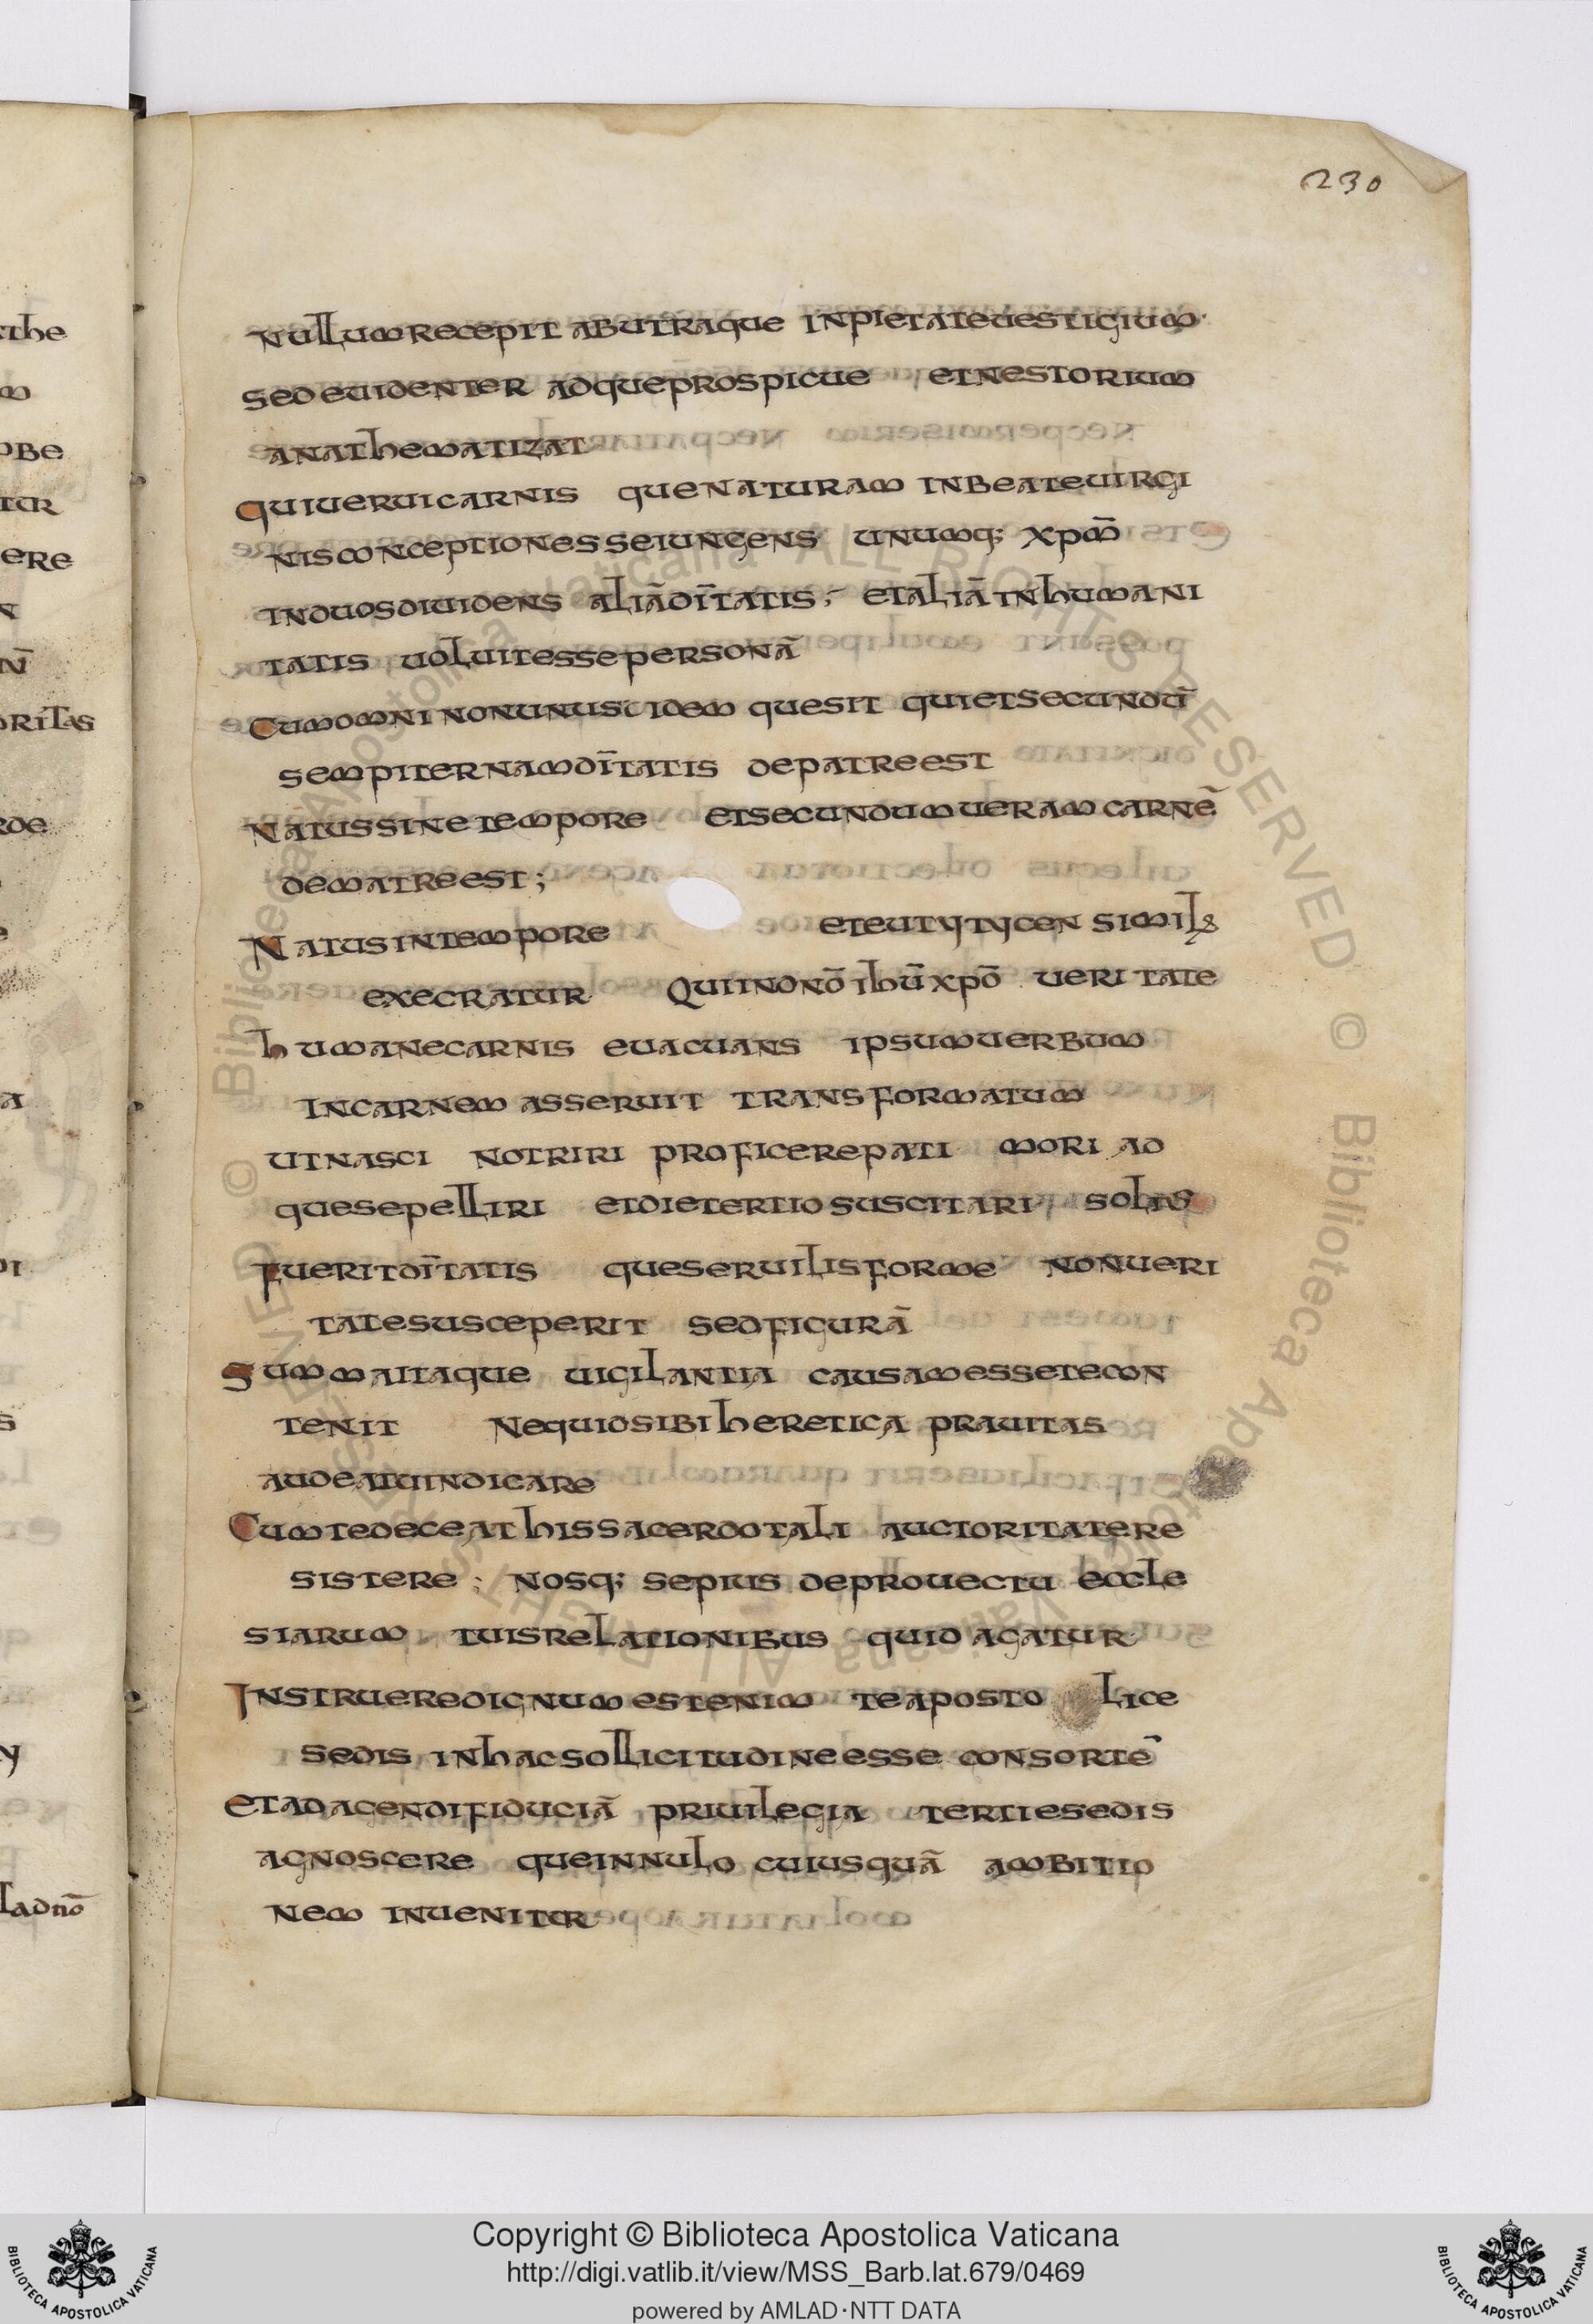 230
nullum recepit ab utraque inpietate uestigium·
sed euidenter adque prospicue et nestorium
anathematizat
qui uerui carnis que naturam in beate uirgi
nis conceptiones seiungens unumq; xpm̄
in duos diuidens aliā dītatis; et aliā in humani
tatis uoluit esse personā
Cum omni non unus idem que sit qui et secundū
sempiternam dītatis de patre est
Natus sine tempore et secundum ueram carnē
de matre est;
Natus in tempore et eutytycen simil&
execratur Qui in onō ihū xpō ueritate
humane carnis euacuans ipsum uerbum
in carnem asseruit transformatum
ut nasci notriri proficere pati mori ad
que sepelliri et die tertio suscitari solius
fuerit dītatis que seruilis forme non ueri
tate susceperit sed figurā
Summa itaque uigilantia causam esse te con
tenit Ne quid sibi heretica prauitas
audeat uindicare
Cum te deceat his sacerdotali auctoritate re
sistere; nosq; sepius de prouectu eccle
siarum tuis relationibus quid agatur
Instruere dignum est enim te aposto lice
sedis in hac sollicitudine esse consortē
Et ad agendi fiduciā priuilegia tertie sedis
agnoscere que in nulo cuiusquā ambitio
nem inuenitur
Copyright © Biblioteca Apostolica Vaticana
http://digi.vatlib.it/view/MSS_Barb.lat.679/0469
powered by AMLAD·NTT DATA